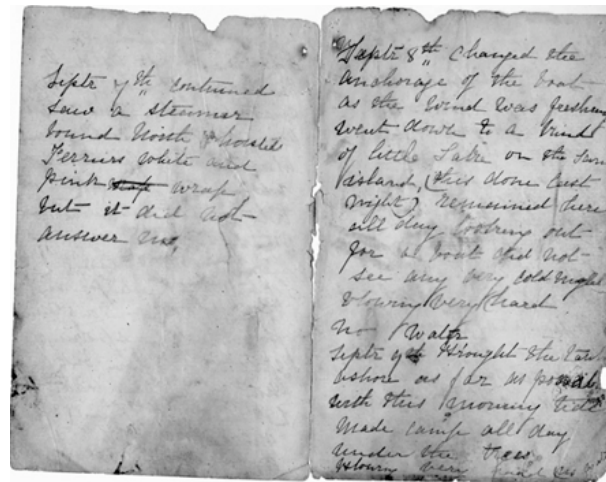 Septr 7th continued
saw a steamer
bound North & hoisted
Ferriers white and
pink wrap
but it did not
answer me,
Septr 8th Changed the
anchorage of the boat
as the wind was freshening
went down to a kind
of little Lake on the same
island, (this done last
night) remained here
all day looking out
for a boat did not
see any very cold night
blowing very hard
no water
Septr 9th Brought the tank
ashore as far as possible
with this morning tide
made camp all day
under the trees
blowing very hard